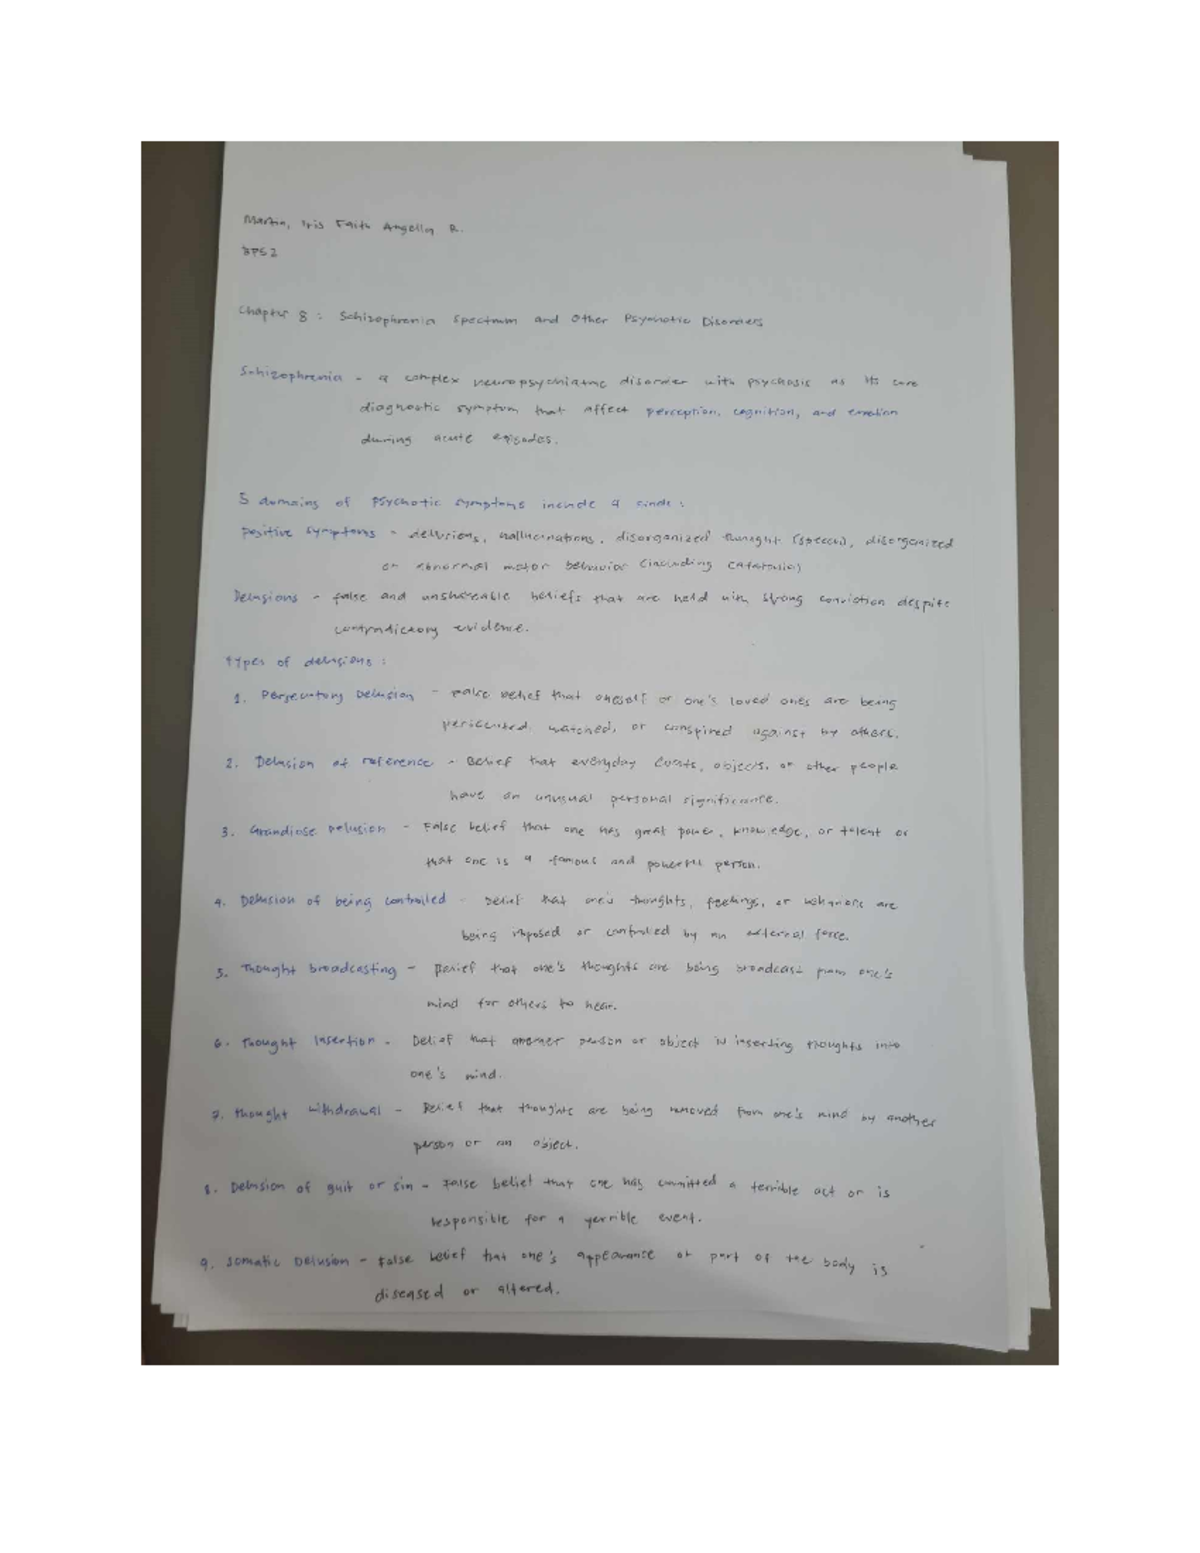 Martin, Iris Faith Angella R.
Chapter 8 : Schizophrenia Spectrum and Other Psychotic Disorders
Schizophrenia - a complex neuropsychiatric disorder with psychosis as its core
diagnostic symptom that affect perception, cognition, and emotion
during acute episodes.
5 domains of psychotic symptoms include 4 kinds :
Positive symptoms - delusions, hallucinations, disorganized thought (speech), disorganized
or abnormal motor behavior (including catatonia)
Delusions - false and unshareable beliefs that are held with strong conviction despite
contradictory evidence.
Types of delusions :
1. Persecutory Delusion - False belief that oneself or one's loved ones are being
persecuted, watched, or conspired against by others.
2. Delusion of reference - Belief that everyday events, objects, or other people
have an unusual personal significance.
3. Grandiose Delusion - False belief that one has great power, knowledge, or talent or
that one is a famous and powerful person.
4. Delusion of being controlled - Belief that one's thoughts, feelings, or behaviors are
being imposed or controlled by an external force.
5. Thought broadcasting - Belief that one's thoughts are being broadcast from one's
mind for others to hear.
6. Thought Insertion - Belief that another person or object is inserting thoughts into
one's mind.
7. Thought withdrawal - Belief that thoughts are being removed from one's mind by another
person or an object.
8. Delusion of guit or sin - False belief that one has committed a terrible act or is
responsible for a yerrible event.
9. Somatic Delusion - False belief that one's appearance or part of the body is
diseased or altered.